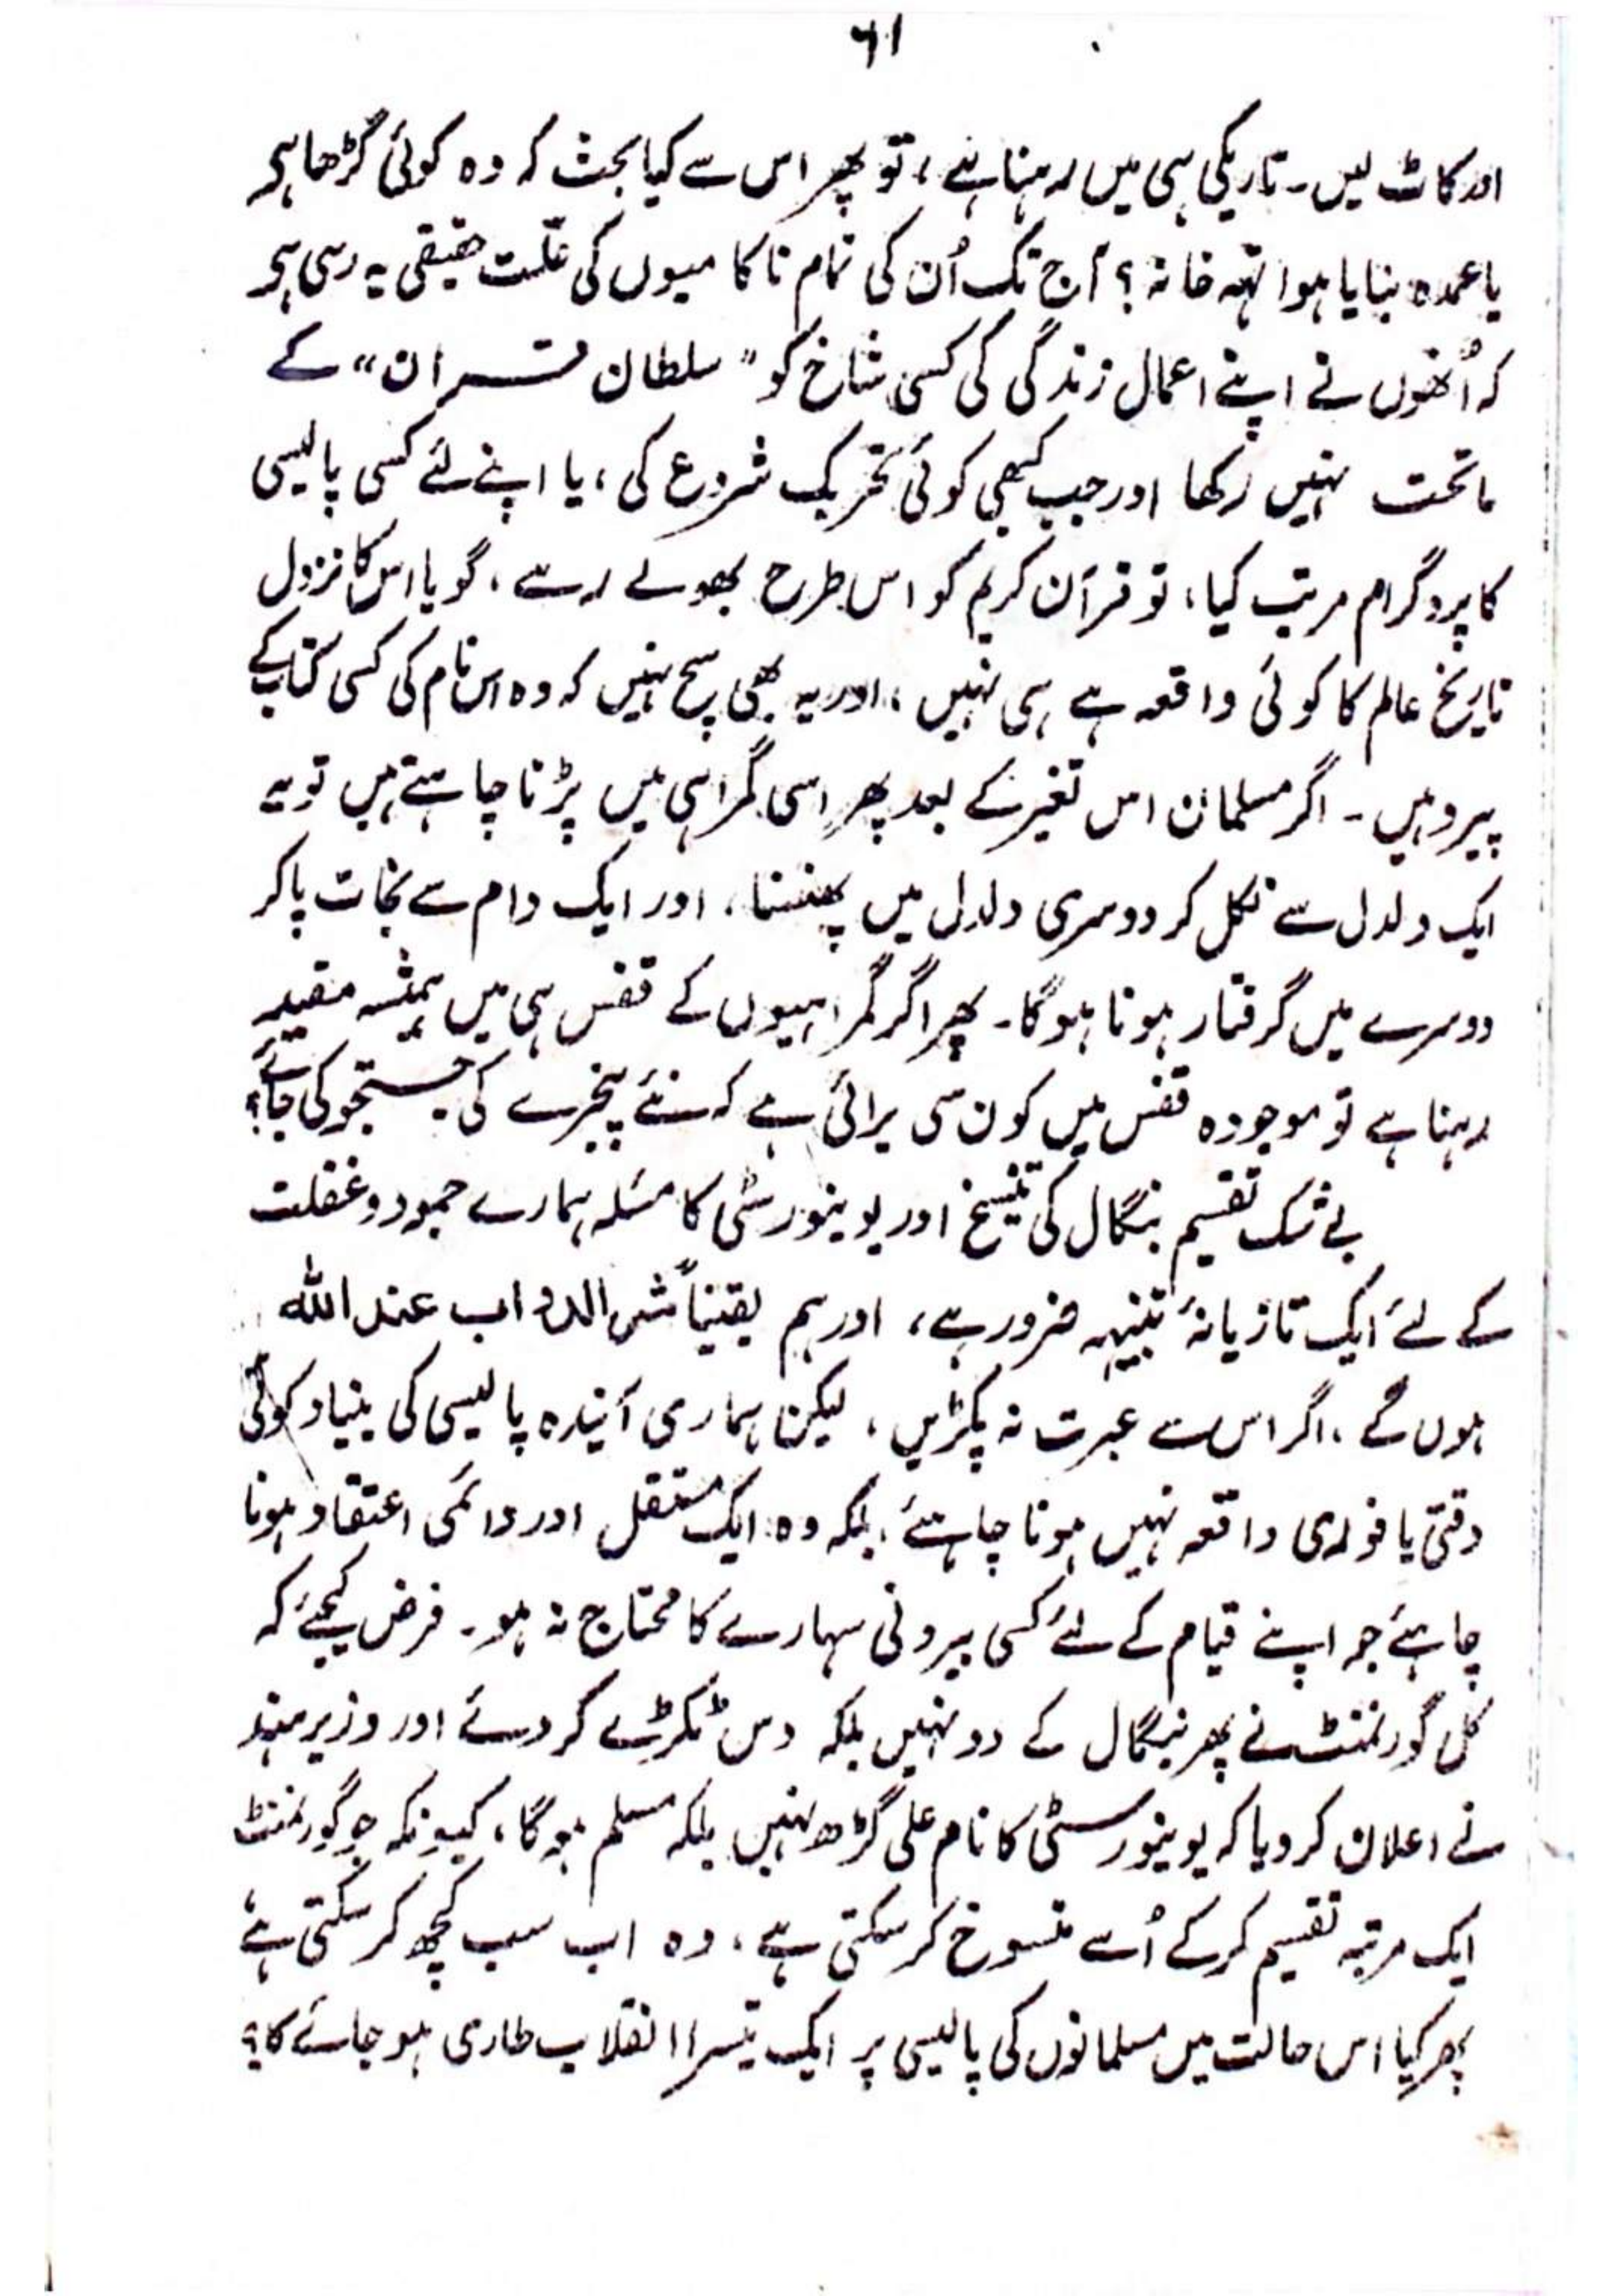 ۶۱
اور کاٹ لیں ۔ تاریکی ہی میں رہنا ہے ، تو پھر اس سے کیا بحث کہ وہ کوئی گڑھا ہے
یا عمدہ بنایا ہوا تہہ خانہ ؟ آج تک اُن کی تمام ناکامیوں کی علّت حقیقی یہ رہی ہے
کہ اُنھوں نے اپنے اعمال زندگی کی کسی شاخ کو " سلطان قرآن " کے
ماتحت نہیں رکھا اور جب کبھی کوئی تحریک شروع کی ، یا اپنے لئے کسی پالیسی
کا پروگرام مرتب کیا ، تو قرآن کریم کو اس طرح بھولے رہے ، گویا اس کا نزول
تاریخ عالم کا کوئی واقعہ ہے ہی نہیں ، اور یہ بھی سچ نہیں کہ وہ اس نام کی کسی کتاب کے
پیرو ہیں ۔ اگر مسلمان اس تغیر کے بعد پھر اسی گمراہی میں پڑنا چاہتے ہیں تو یہ
ایک دلدل سے نکل کر دوسری دلدل میں پھنسنا ، اور ایک دام سے نجات پا کر
دوسرے میں گرفتار ہونا ہوگا ۔ پھر اگر گمراہیوں کے قفس ہی میں ہمیشہ مقید
رہنا ہے تو موجودہ قفس میں کون سی برائی ہے کہ نئے پنجرے کی جستجو کی جائے ؟
بے شک تقسیم بنگال کی تنسیخ اور یونیورسٹی کا مسئلہ ہمارے جمود و غفلت
کے لئے ایک تازیانۂ تنبیہہ ضرور ہے ، اور ہم یقیناً شر الدواب عند اللہ
ہوں گے ، اگر اس سے عبرت نہ پکڑیں ، لیکن ہماری آیندہ پالیسی کی بنیاد کوئی
وقتی یا فوری واقعہ نہیں ہونا چاہئے ، بلکہ وہ ایک مستقل اور دائمی اعتقاد ہونا
چاہئے جو اپنے قیام کے لئے کسی بیرونی سہارے کا محتاج نہ ہو ۔ فرض کیجئے کہ
کل گورنمنٹ نے پھر بنگال کے دو نہیں بلکہ دس ٹکڑے کر دئے اور وزیر ہند
نے اعلان کر دیا کہ یونیورسٹی کا نام علی گڑھ نہیں بلکہ مسلم ہوگا ، کیونکہ جو گورنمنٹ
ایک مرتبہ تقسیم کر کے اُسے منسوخ کر سکتی ہے ، وہ اب سب کچھ کر سکتی ہے ،
پھر کیا اس حالت میں مسلمانوں کی پالیسی پر ایک تیسرا انقلاب طاری ہو جائے گا ؟